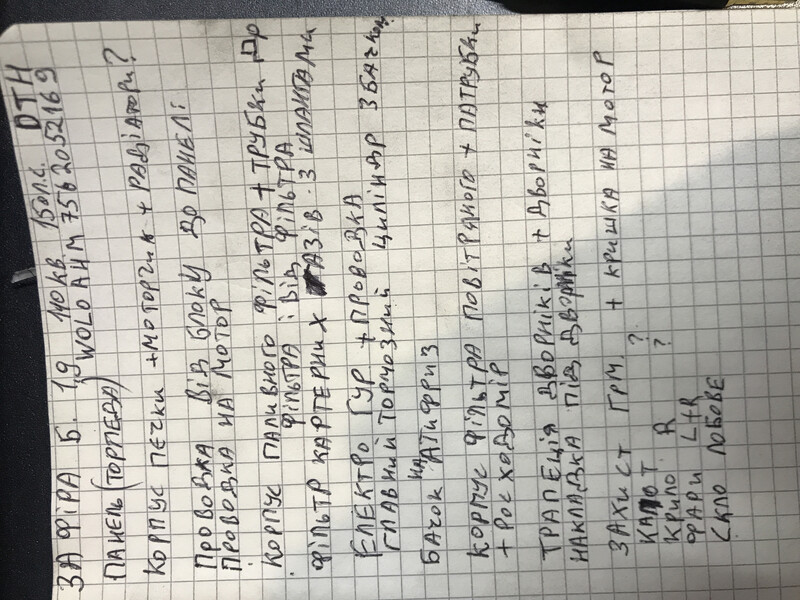 ЗАФІРА Б. 1,9 110КВ 150Л.С. DTH
WOLOAHM 7562052169
ПАНЕЛЬ (ТОРПЕДА)
КОРПУС ПЕЧКИ +МОТОРЧИК + РАДІАТОРИ?
ПРОВОДКА ВІД БЛОКУ ДО ПАНЕЛІ
ПРОВОДКА НА МОТОР
КОРПУС ПАЛИВНОГО ФІЛЬТРА + ТРУБКИ ДО
ФІЛЬТРА І ВІД ФІЛЬТРА
ФІЛЬТР КАРТЕРНИХ ГАЗІВ З ШЛАНГАМИ
ЕЛЕКТРО ГУР + ПРОВОДКА
ГЛАВНИЙ ТОРМОЗНИЙ ЦИЛІНДР З БАЧКОМ
БАЧОК НА АТИФРИЗ
КОРПУС ФІЛЬТРА ПОВІТРЯНОГО + ПАТРУБКИ
+ РОСХОДОМІР
ТРАПЕЦІЯ ДВОРНІКІВ + ДВОРНІКИ
НАКЛАДКА ПІД ДВОРНІКИ
ЗАХИСТ ГРМ. + КРИШКА НА МОТОР
КАПОТ ?
КРИЛО R ?
ФАРИ L+R
СКЛО ЛОБОВЕ